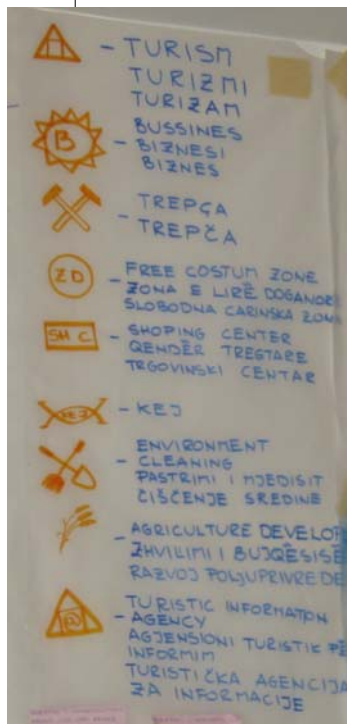 - TURISM
TURIZMI
TURIZAM
B
BUSSINES
- BIZNESI
BIZNES
TREPÇA
- TREPČA
ZD
- FREE COSTUM ZONE
ZONA E LIRË DOGANORE
SLOBODNA CARINSKA ZONA
SH C
- SHOPING CENTER
QENDËR TREGTARE
TRGOVINSKI CENTAR
- KEJ
ENVIRONMENT
- CLEANING
PASTRIMI I MJEDISIT
ČIŠČENJE SREDINE
- AGRICULTURE DEVELOP
ZHVILIMI I BUJQËSISË
RAZVOJ POLJUPRIVREDE
TURISTIC INFORMATION
- AGENCY
AGJENSIONI TURISTIK PË
INFORMIM
TURISTIČKA AGENCIJA
ZA INFORMACIJE